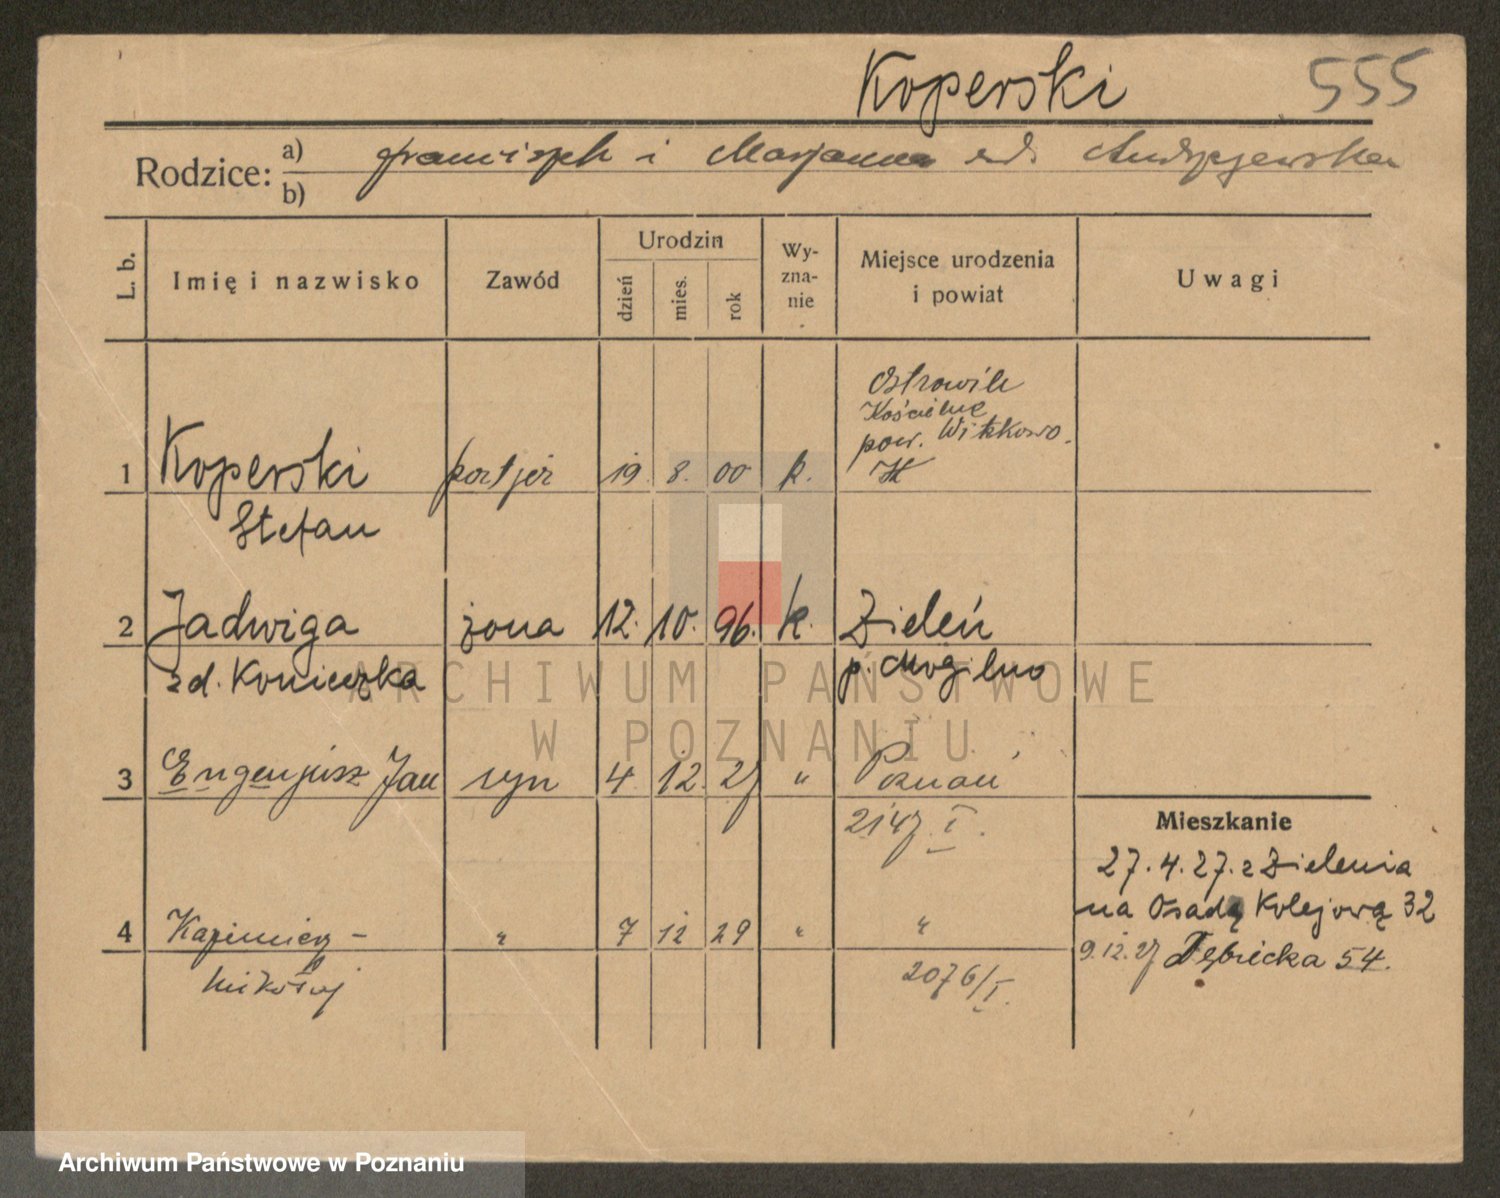 Koperski 555
Rodzice: a) Franciszek i Marjanna zd. Andrzejewska
b)
L. b. Imię i nazwisko Zawód Urodzin dzień mies. rok Wy-zna-nie Miejsce urodzenia i powiat Uwagi
Ostrowite
Kościelne
pow. Witkowo.
1 Koperski portjer 19. 8. 00 k.
Stefan
2 Jadwiga żona 12. 10. 96. k. Zieleń
zd. Konieczka p. Mogilno
ARCHIWUM PAŃSTWOWE
W POZNANIU
3 Eugenjusz Jan syn 4. 12. 27 " Poznań
2147 I.
Mieszkanie
27.4.27. z Zielenia
na Osadę Kolejową 32
4 Kazimierz - " 7 12 29 " "
9.12.27 Dębiecka 54.
Mikołaj 2076/I.
Archiwum Państwowe w Poznaniu